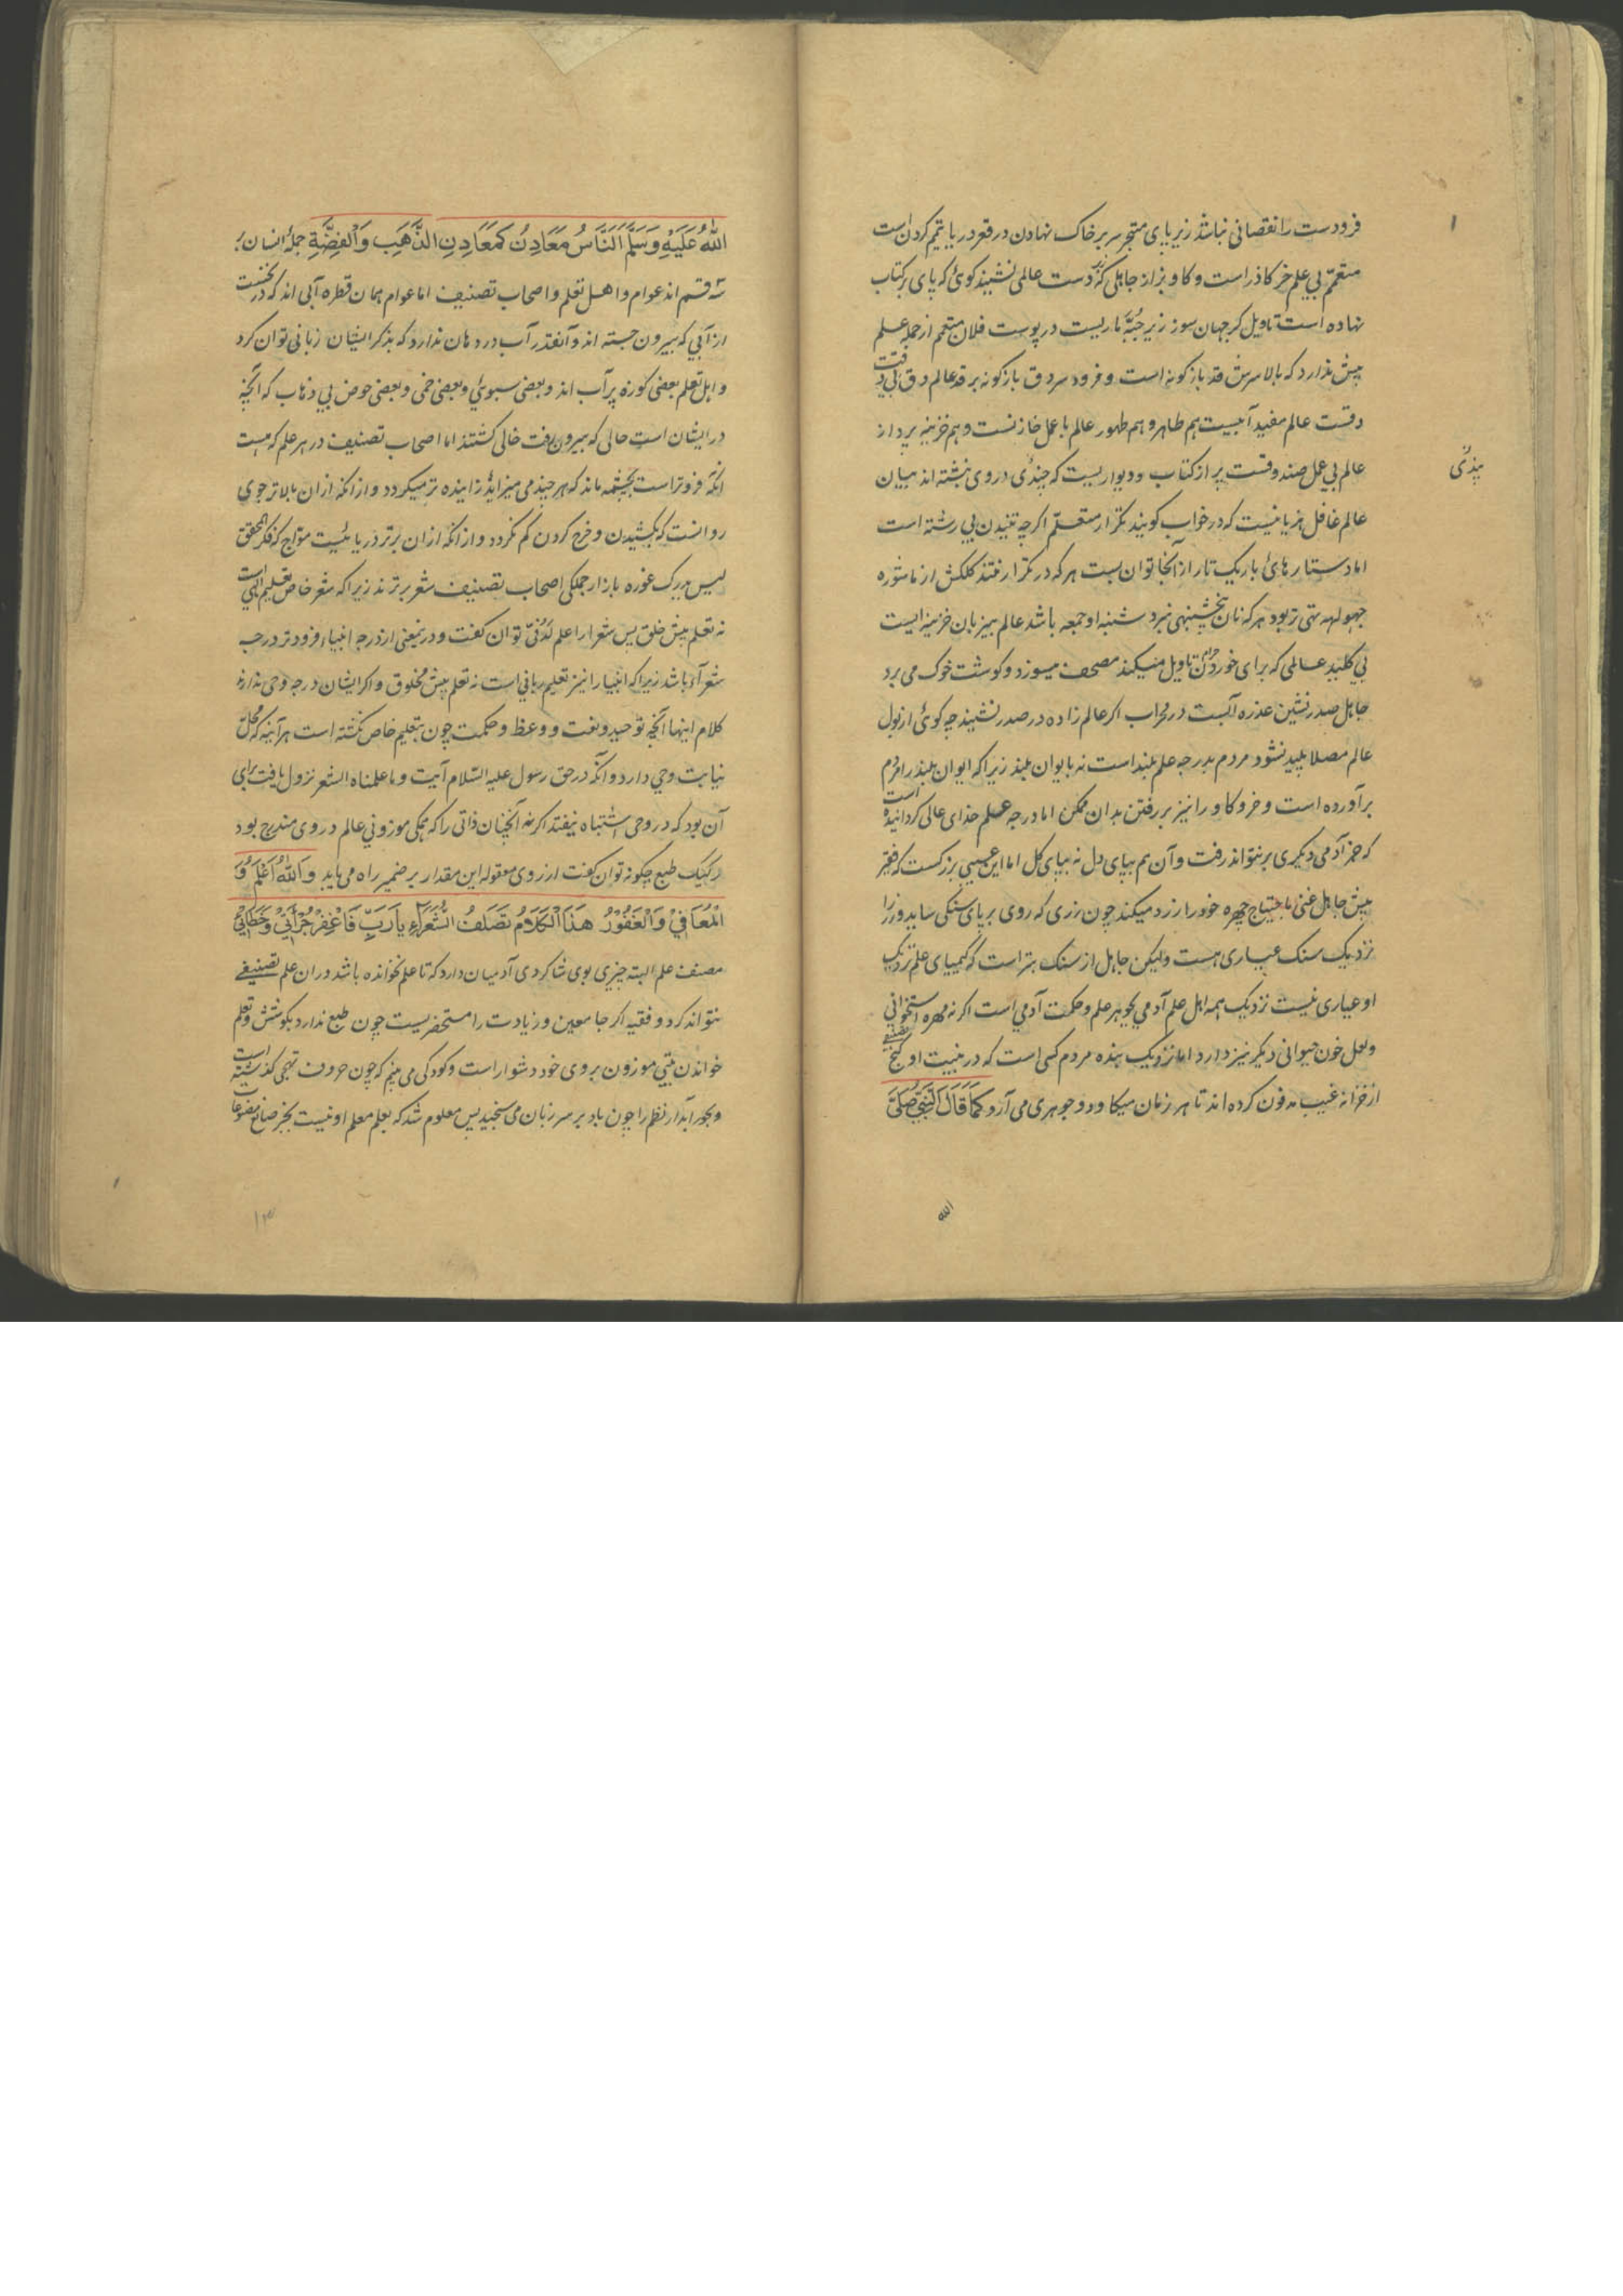 فرودست را نقصانی نباشد زیر پای متبحر سر بر خاک نهادن در قعر دریا تیمم کردن است
متعمم بی علم خر کاذر است و کاو بزاز جاهلی که زبر دست عالمی نشیند کوئی که پای بر کتاب
نهاده است تاویل کر جهان سوز زیر جبّه ماریست در پوست فلان متعمم از جمله علم
پیش ندارد که بالا سرش قد باز کونه است و فرود سر دق باز کونه بر قد عالم دق بی دقت
دقست عالم مفید آبیست هم طاهر و هم طهور عالم با عمل خازنست و هم خزینه پرداز
عالم بی عمل صندوقست پر از کتاب و دیواریست که چندی در وی نبشته اند بیان
پندی
عالم غافل هزیانیست که در خواب کویند تکرار متعلّم اکرچه تنیدن بی رشته است
اما دستارهائ باریک تار از آنجا توان بست هر که در تکرار نفتد کلکش از ماشوره
جهوله تهی تر بود هر که نان پنجشنبهی نبرد شنبه او جمعه باشد عالم بیزبان خزینه ایست
بی کلید عالمی که برای خوردن حرام تاویل میکند مصحف میسوزد و کوشت خوک می برد
جاهل صدر نشین عذره آنست در محراب اکر عالم زاده در صدر نشیند چه کوئ از بول
عالم مصلا پلید نشود مردم بدرجه علم بلند است نه بایوان بلند زیرا که ایوان بلند را مردم
برآورده است و خر و کاو را نیز بر رفتن بدان ممکن اما درجه علم خدای عالی کردانیده است
که جز آدمی دیکری بر نتواند رفت و آن هم بپای دل نه بپای کل اما این عیبی بزرکست که فقیر
پیش جاهل غنی باحتیاج چهره خود را زرد میکند چون زری که روی بر پای سنکی ساید و زر را
نزدیک سنک عیاری هست ولیکن جاهل از سنک بتر است که کیمیای علم نزدیک
او عیاری نیست نزدیک همه اهل علم آدمی بجوهر علم و حکمت آدمی است اکر نه مهره استخوانی
و لعل خون حیوانی دیکر نیز دارد اما نزدیک بنده مردم کسی است که در بنیت او کنج تصنیفی
از خزانه غیب مدفون کرده اند تا هر زمان میکاود و جوهری می آرد کَمَا قَالَ النَّبِیُّ صَلَّی
الله
اللّٰهُ عَلَیْهِ وَسَلَّمَ اَلنَّاسُ مَعَادِنُ کَمَعَادِنِ الذَّهَبِ وَالْفِضَّةِ جملهٔ انسان بر
سه قسم اند عوام و اهل تعلم و اصحاب تصنیف اما عوام همان قطره آبی اند که در نخست
از آبی که بیرون جسته اند و آنقدر آب در دهان ندارد که بذکر ایشان زبانی توان کرد
و اهل تعلم بعضی کوزه پر آب اند و بعضی سبوئی و بعضی خمی و بعضی حوض بی ذهاب که آنچه
در ایشان است حالی که بیرون رفت خالی کشتند اما اصحاب تصنیف در هر علم که هست
آنکه فروتر است بچشمه ماند که هر چند می میزاید زاینده تر میکردد و از آنکه از ان بالاتر جوی
روانست که بکشیدن و خرج کردن کم نکردد و از آنکه از ان برتر دریائیست مواج که فکر محقق
لیس یدرک غوره باز از جملکی اصحاب تصنیف شعر برترند زیرا که شعر خاص تعلیم الهی است
نه تعلم پیش خلق پس شعرا را علم لدنّی توان کفت و در نیمعنی از درجه انبیاء فرودتر درجه
شعرآء باشد زیرا که انبیا را نیز تعلیم ربانی است نه تعلم پیش مخلوق و اکر ایشان درجه وحی ندارند
کلام اینها آنچه توحید و نعت و وعظ و حکمت چون بتعلیم خاص نکشته است هر آئینه که محل
نیابت وحی دارد و آنکه در حق رسول علیه السلام آیت و ما علمناه الشعر نزول یافت برای
آن بود که در وحی اشتباه نیفتد اکر نه آنچنان ذاتی را که همکی موزونی عالم در وی مندرج بود
رکیک طبع چکونه توان کفت از روی معقوله این مقدار بر ضمیر راه می یابد وَاللّٰهُ اَعْلَمُ وَ
الْمُعَافِیْ وَالْغَفُوْرُ هَذَا الْکَلَامُ تَصَلَفُ الشُّعَرَاءِ یَارَبِّ فَاغْفِرْ جُرْأَتِیْ وَخَطَائِیْ
مصنف علم البته چیزی بوی شاکردی آدمیان دارد که تا علم نخوانده باشد در ان علم تصنیفی
نتواند کرد و فقیه اکر جامعین و زیادت را مستحضریست چون طبع ندارد بکوشش و تعلم
خواندن بیتی موزون بر وی خود دشوار است و کودکی می بینم که چون حروف تهجی کذشته است
و بحور آبدار نظم را چون باد بر سر زبان می سنجید پس معلوم شد که بعلم معلم او نیست بجز صانع مصنوعات
۱۳